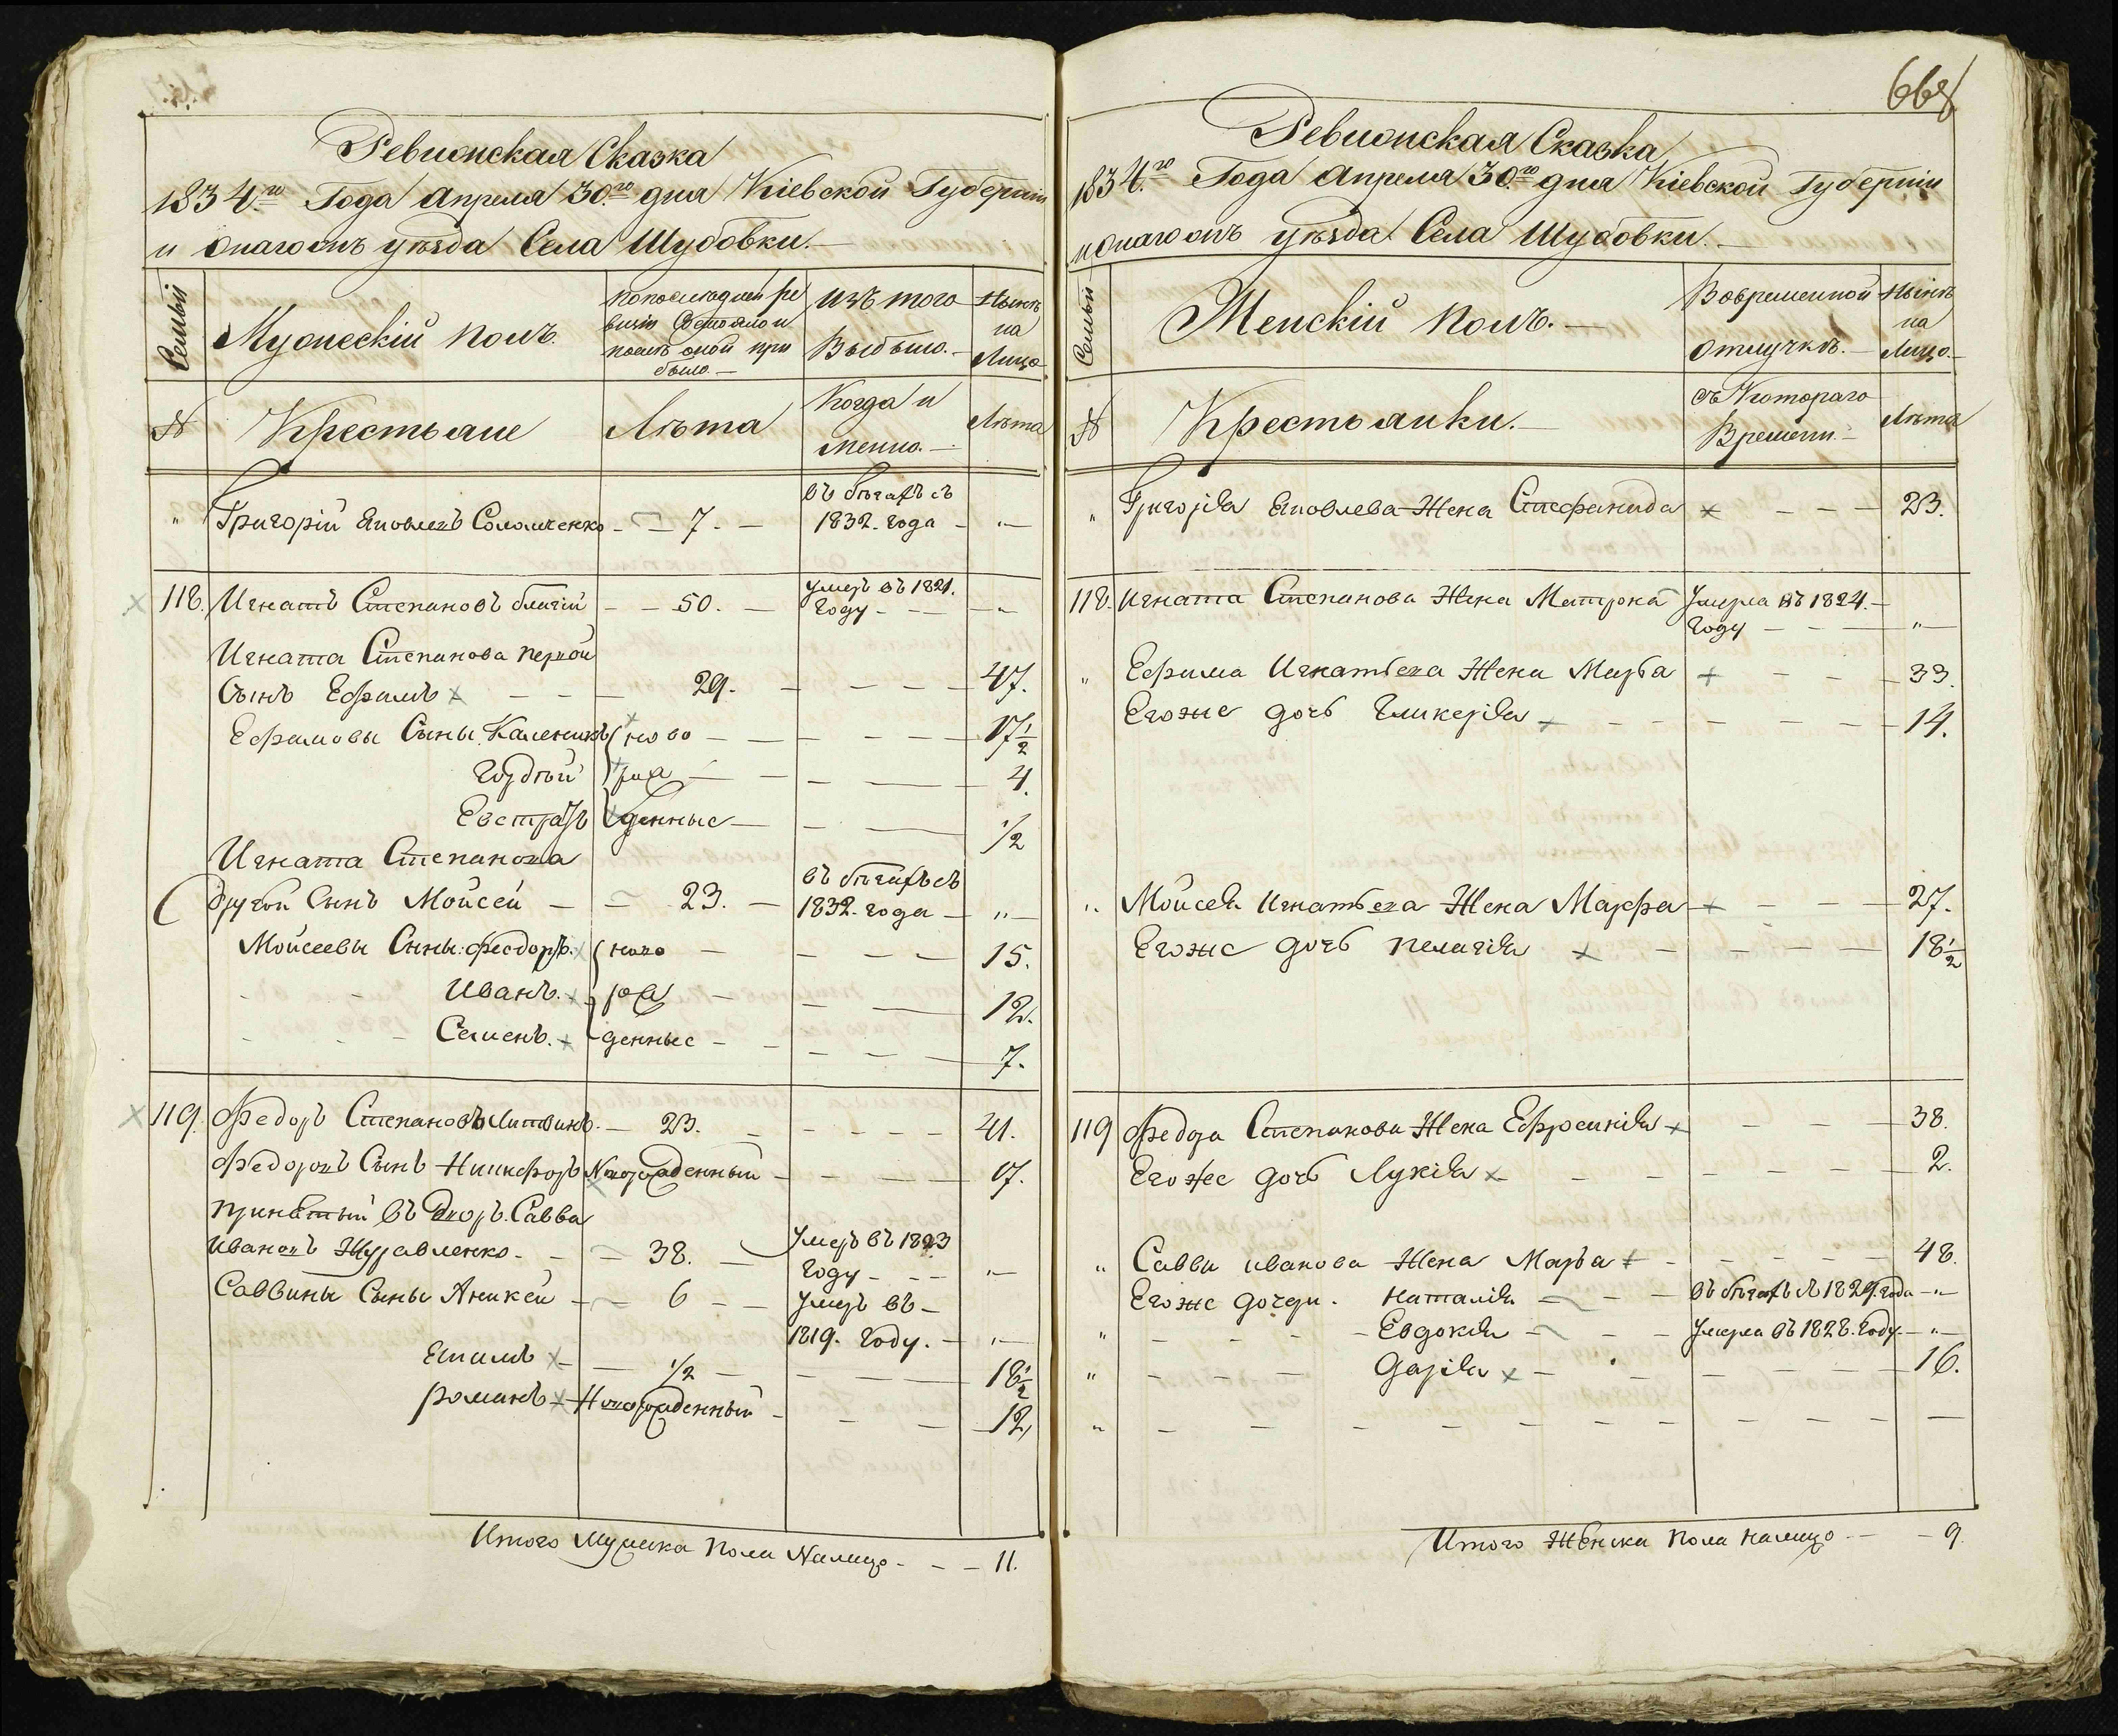 668
Ревизская Сказка
1834.го Года Апреля 30.го дня Кіевской Губерніи
и онагожъ уѣзда Села Шубовки.
Семьи
Мужескій полъ.
По последней ре
визіи Состояло и
послѣ оной при
было.
Изъ того
Выбыло.
Нынѣ
на
Лицо
№
Крестьяне
Лѣта
Когда и
менно.
Лѣта
" Григорій Яковлевъ Соломченко - 7. - въ бѣгахъ съ
1832. года - "
118. Игнатъ Степановъ - - 50. - умеръ въ 1821.
Году - - "
Игната Степанова первой
Сынъ Ефимъ - - - 29. - - - 47.
Ефимовы Сыны Каленикъ ново - - - - 17 1/2
Гордѣй - - - 4.
Евстрахъ жденные - - - 1/2
Игната Степанова
другой Сынъ Мойсей - - 23. - въ бѣгахъ съ
1832. года - "
Мойсеевы Сыны: Федоръ. ново - - - - 15.
Иванъ. ро - - - 12.
Семенъ. жденные - - - - 7.
119. Федоръ Степановъ Литвинъ. - 23. - - - - 41.
Федоровъ Сынъ Никифоръ Новорожденный - - - 17.
принятый въ Дворъ. Савва
Ивановъ Журавленко - - 38. - Умеръ въ 1823
Году - - "
Саввины Сыны Аникей - 6 - - Умеръ въ -
1819. Году. - "
- - 1/2 - - - - 18 1/2
романъ - Новорожденный - - - 12,
Итого Мужска пола Налицо - - - 11.
Ревизская Сказка
1834.го Года Апреля 30.го дня Кіевской Губерніи
и онагожъ уѣзда Села Шубовки.
Семьи
Женскій полъ.
Вовременной
отлучкѣ.
Нынѣ
на
Лицо
№
Крестьянки.
съ Котораго
Времени.
Лѣта
" Григорія Яковлева Жена Стефанида - - - 23.
118. Игната Степанова Жена Матрона Умерла въ 1824. -
году - - - "
" Ефима Игнатьева Жена Марья - - - 33.
Егоже дочь Гликерія - - - - - 14.
" Мойсея Игнатьева Жена Марфа - - - - 27.
Егоже дочь пелагія - - - - 18 1/2
119 Федора Степанова Жена Ефросинія - - - 38.
Егоже дочь Лукія - - - - - 2.
" Саввы иванова Жена Марья - - - - 48.
Егоже дочери. Наталія - - - въ бѣгахъ съ 1829. года - "
" - - - Евдокія - - - Умерла въ 1828. Году. - "
" - - - Дарія - - - - 16.
" - - - - - - - - - - -
Итого Женска пола налицо - - - 9.